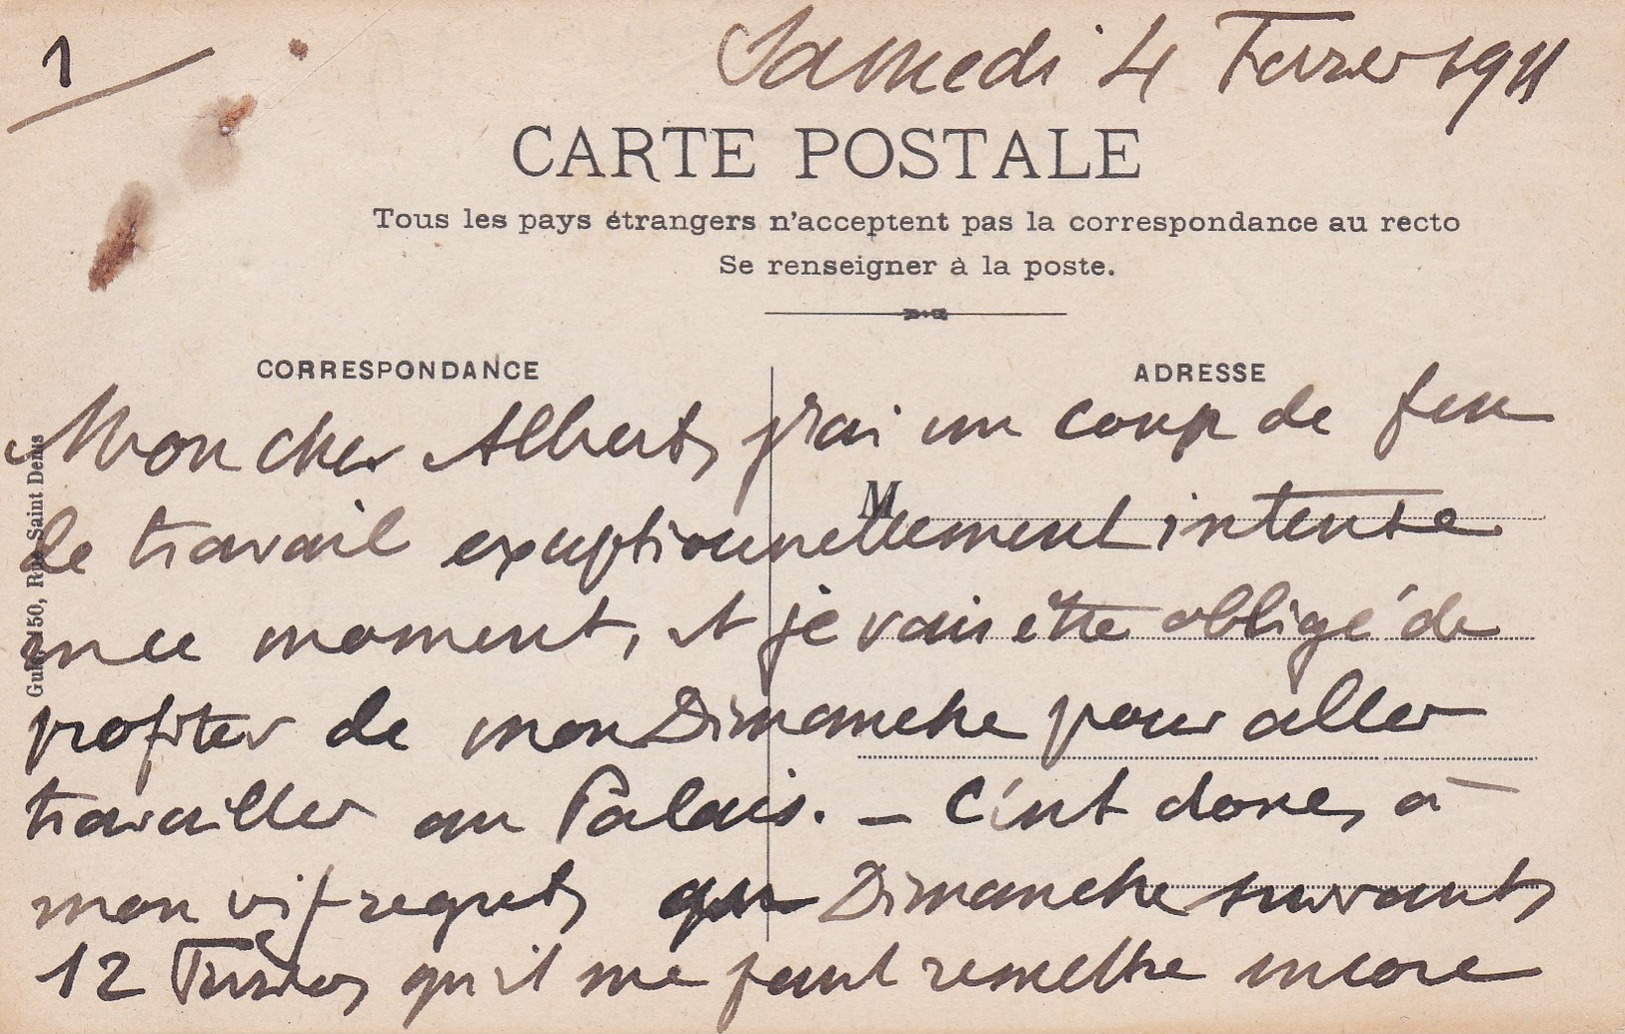 1
Samedi 4 Février 1911
CARTE POSTALE
Tous les pays étrangers n'acceptent pas la correspondance au recto
Se renseigner à la poste.
CORRESPONDANCE
ADRESSE
Mon cher Albert, j'ai un coup de feu
M
de travail exceptionnellement intense
en ce moment, et je vais être obligé de
profiter de mon Dimanche pour aller
travailler au Palais. — C'est donc, à
mon vif regret, au Dimanche suivant,
12 Février, qu'il me faut remettre encore
150, Rue Saint Denis